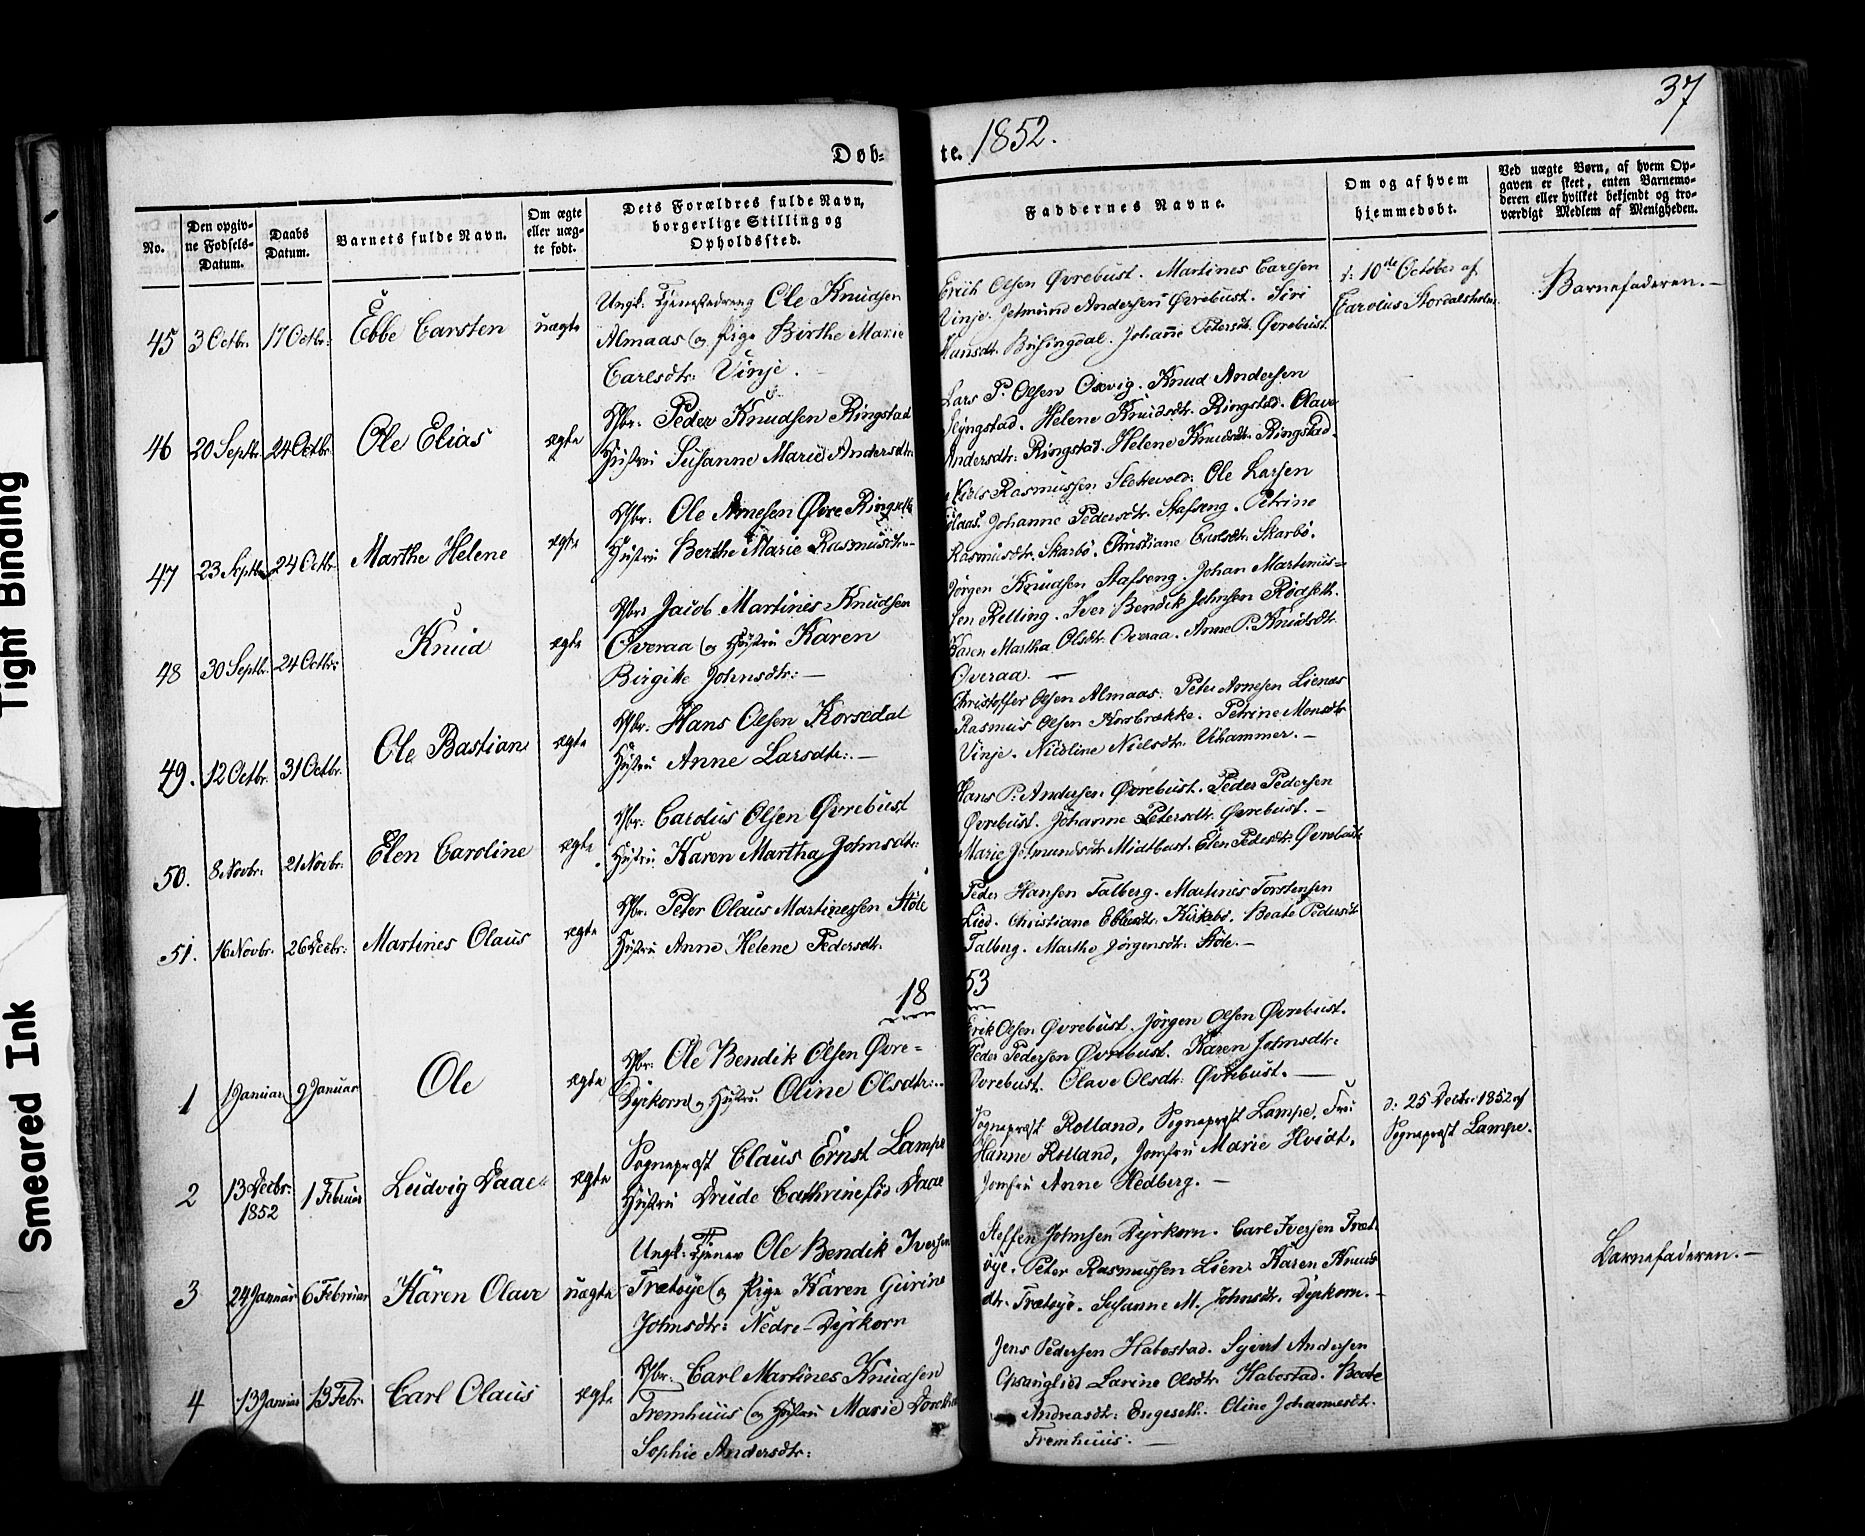 37
Døb-
te. 1852.
No.
Den opgiv-
ne Fødsels-
Datum.
Daabs
Datum.
Barnets fulde Navn.
Om ægte
eller uæg-
te født.
Dets Forældres fulde Navn,
borgerlige Stilling og
Opholdssted.
Faddernes Navne.
Om og af hvem
hjemmedøbt.
Ved uægte Børn, af hvem Op-
gaven er skeet, enten Barnemo-
deren eller hvilket bekjendt og tro-
værdigt Medlem af Menigheden.
45 3 Octbr. 17 Octbr: Ebbe Carsten uægte
Ungk: Tjenestedreng Ole Knudsen
Almaas og Pige Birthe Marie
Carlsdtr: Vinje.
Erich Olsen Øvrebust. Martines Carlsen
Vinje. Jetmund Andersen Øvrebust. Siri
Hansdt. Johanne Petersdt. Øvrebust.
d: 10de October af
Carolus Stordalsholm
Barnefaderen.
46 20 Septbr. 24 Octbr. Ole Elias ægte
Gbr. Peder Knudsen Ringstad
Hustru Susanne Marie Andersdtr
Lars P. Olsen Oxvig. Knud Andersen
Slyngstad. Helene Knudsdtr. Ringstad. Olave
Andersdtr: Ringstad. Helene Knudsdt. Ringstad.
47 23 Septbr 24 Octbr Marthe Helene ægte
Gbr. Ole Arnesen Øvre Ringseth
Hustru Berthe Marie Rasmusdtr
Niels Rasmussen Ole Larsen
Johanne Pedersdtr. Stafseng. Petrine
Rasmusdtr. Skarbø. Christiane Carlsdtr. Skarbø.
48 30 Septbr. 24 Octbr: Knud ægte
Gbr: Jacob Martines Knudsen
Overaa og Hustru Karen
Birgitte Johnsdtr:
Jørgen Knudsen Stafseng. Johan Martinus-
sen Relling. Iver Bendik Johnsen Rødseth.
Karen Martha Olsdtr. Overaa. Anne P. Knudsdt
Overaa.
49. 12 Octbr. 31 Octbr. Ole Bastian ægte
Gbr. Hans Olsen Korsedal
Hustru Anne Larsdtr:
Christoffer Olsen Almaas. Peter Arnesen Lienæs
Rasmus Olsen Korsbrække. Petrine Monsdtr
Vinje. Nicoline Nielsdtr. Uthammer.
50. 8 Novbr. 21 Novbr. Elen Caroline ægte
Gbr. Carolus Olsen Øvrebust
Hustru Karen Martha Johnsdtr:
Hans P. Andersen Øvrebust. Peder Pedersen
Øvrebust. Johanne Petersdtr. Øvrebust.
Marie Jetmundsdtr. Midtbust. Elen Pedersdtr. Øvrebust
51. 16 Novbr. 26 Decbr: Martines Olaus ægte
Gbr. Peter Olaus Martinessen Støle
Hustru Anne Helene Pedersdt.
Peder Hansen Talberg. Martines Torstensen
Lied. Christiane Ebbesdtr. Kirkebø. Beate Pedersdt
Talberg. Marthe Jørgensdtr: Støle.
18 53
1 1 Januar 9 Januar Ole ægte
Gbr: Ole Bendik Olsen Øvre-
Dyrkorn og Hustru Oline Olsdtr:
Erik Olsen Øvrebust. Jørgen Olsen Øvrebust.
Peder Pedersen Øvrebust. Karen Johnsdtr:
Øvrebust. Olave Olsdtr: Øvrebust.
2 13 Decbr: 1852 1 Februar Ludvig Daae ægte
Sognepræst Claus Ernst Lampe
Hustru Drude Cathrine fød Daae
Sognepræst Rolland, Sognepræst Lampe, Fru
Hanne Rolland, Jomfru Marie Hvidt,
Jomfru Anne Hedberg.
d: 25 Decbr 1852 af
Sognepræst Lampe.
3 24 Januar 6 Februar Karen Olave uægte
Ungk: Tjener Ole Bendik Iversen
Trætøye og Pige Karen Gurine
Johnsdtr: Nedre-Dyrkorn
Steffen Johnsen Dyrkorn. Carl Iversen Træt-
øye. Peter Rasmussen Lien. Karen Knuds
dtr. Trætøye. Susanne M. Johnsdt. Dyrkorn.
Barnefaderen.
4 13 Januar 13 Febr. Carl Olaus ægte
Gbr. Carl Martines Knudsen
Fremhuus og Hustru Marie Dorethe
Sophie Andersdtr:
Jens Pedersen Habostad. Syvert Andersen
Opsanglied Larine Olsdtr Habostad. Beate
Andreasdtr: Engeseth. Oline Johannesdt.
Fremhuus.
Tight Binding
Smeared Ink